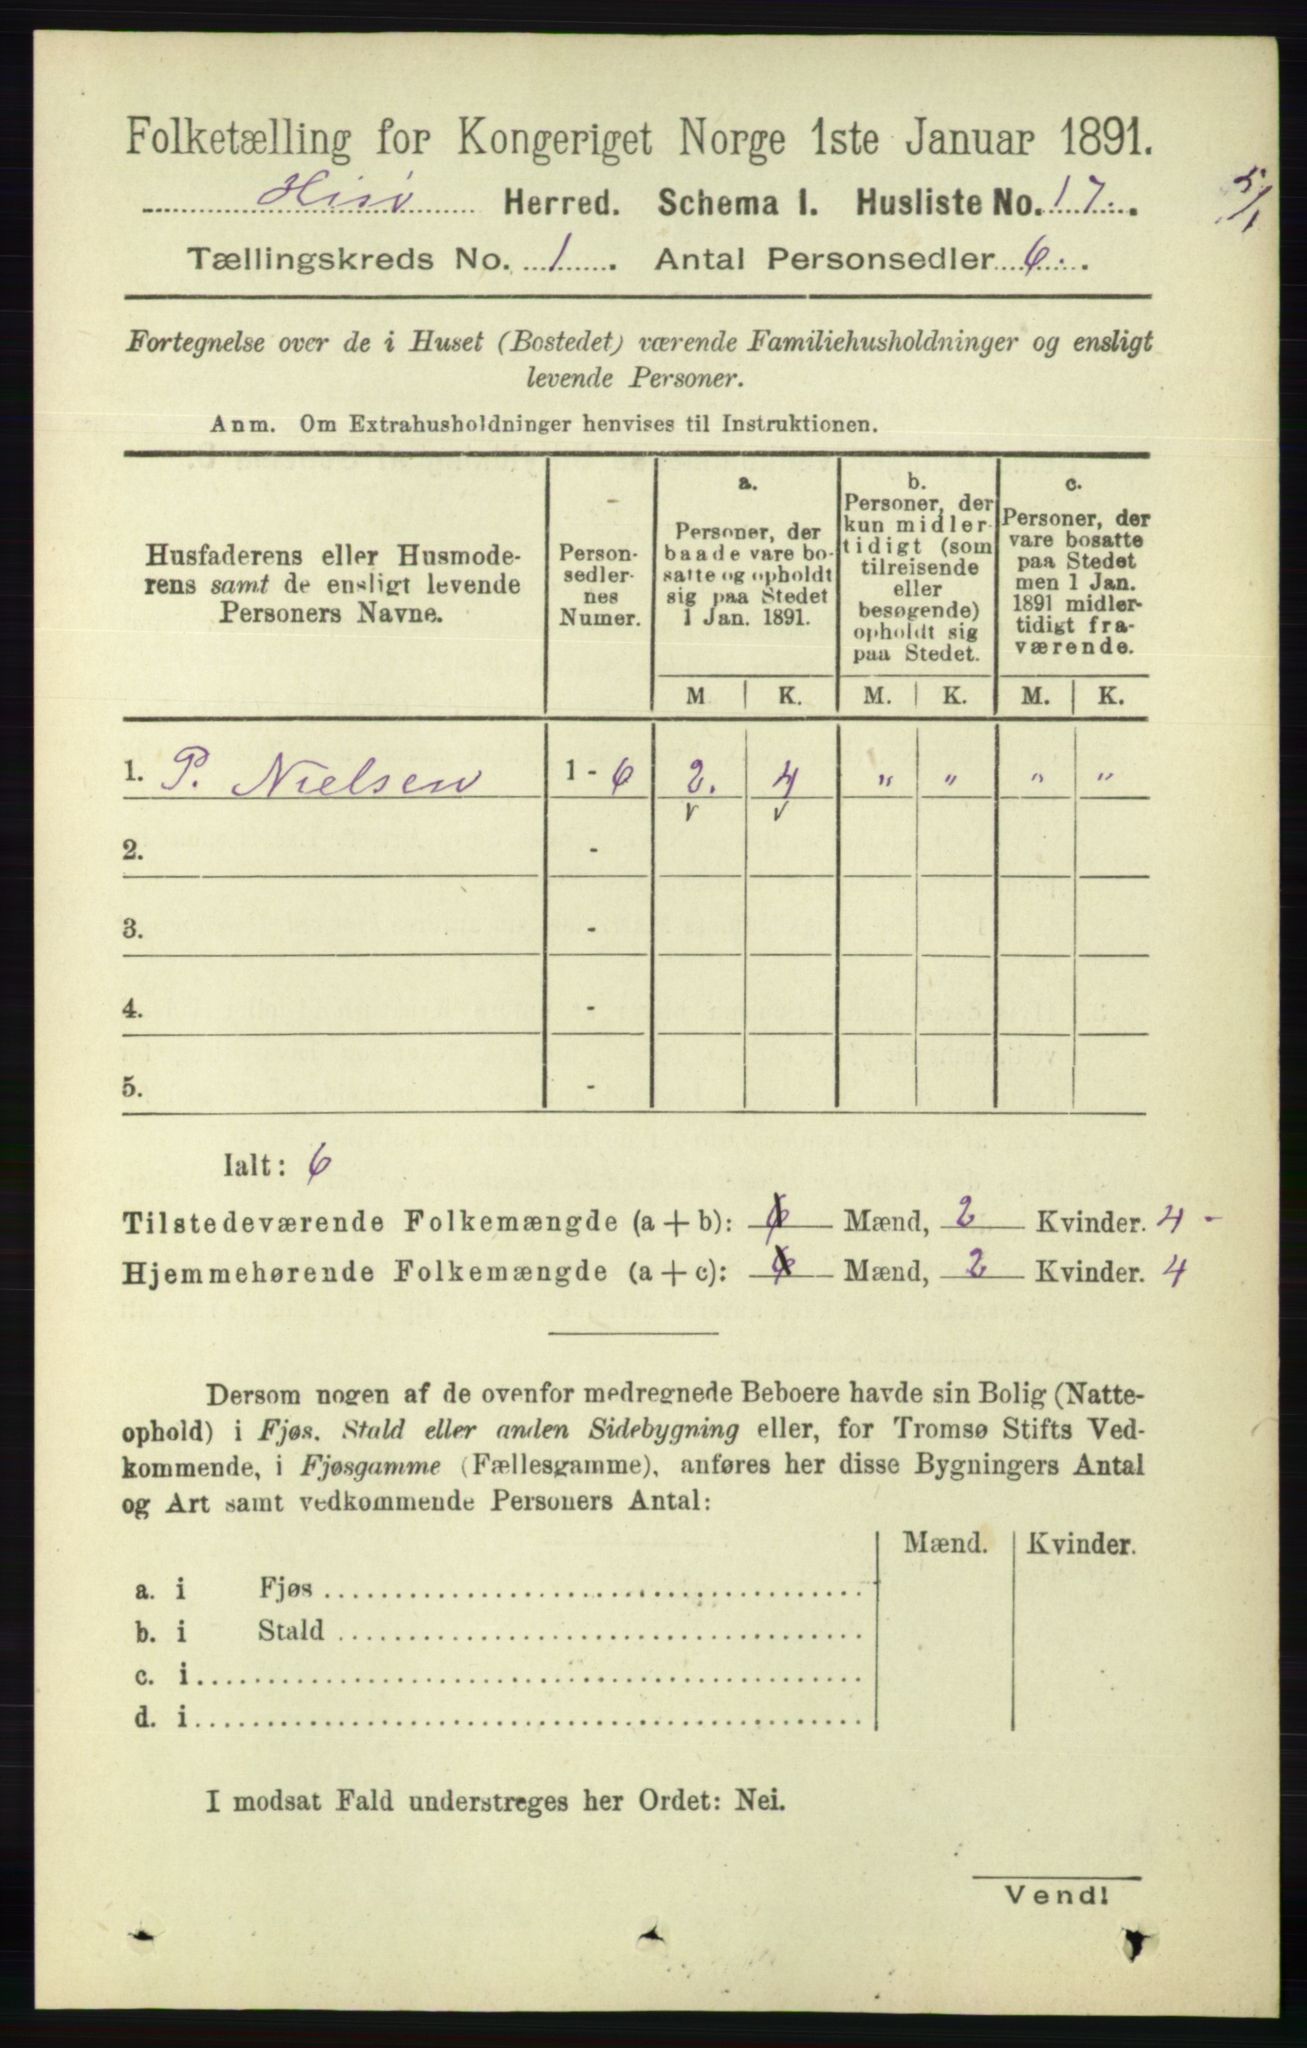 Folketælling for Kongeriget Norge 1ste Januar 1891.
Hisø Herred. Schema 1. Husliste No. 17.
5/1
Tællingskreds No. 1. Antal Personsedler 6.
Fortegnelse over de i Huset (Bostedet) værende Familiehusholdninger og ensligt
levende Personer.
Anm. Om Extrahusholdninger henvises til Instruktionen.
Husfaderens eller Husmode-
rens samt de ensligt levende
Personers Navne.
Person-
sedler-
nes
Numer.
a.
Personer, der
baade vare bo-
satte og opholdt
sig paa Stedet
1 Jan. 1891.
b.
Personer, der
kun midler-
tidigt (som
tilreisende
eller
besøgende)
opholdt sig
paa Stedet.
c.
Personer, der
vare bosatte
paa Stedet
men 1 Jan.
1891 midler-
tidigt fra-
værende.
M K. M. K. M. K.
1. P. Nielsen 1 - 6 2. 4 " " " "
2. -
3. -
4. -
5. -
Ialt: 6
Tilstedeværende Folkemængde (a + b): 6 Mænd, 2 Kvinder. 4 -
Hjemmehørende Folkemængde (a + c): 6 Mænd, 2 Kvinder. 4
Dersom nogen af de ovenfor medregnede Beboere havde sin Bolig (Natte-
ophold) i Fjøs, Stald eller anden Sidebygning eller, for Tromsø Stifts Ved-
kommende, i Fjøsgamme (Fællesgamme), anføres her disse Bygningers Antal
og Art samt vedkommende Personers Antal:
Mænd. Kvinder.
a. i Fjøs
b. i Stald
c. i
d. i
I modsat Fald understreges her Ordet: Nei.
Vend!